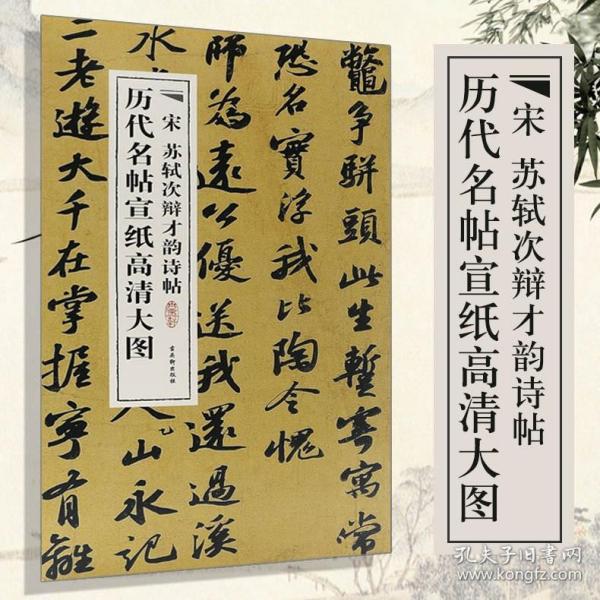 鼈争駢頭此生蹔寄寓常
恐名實浮我比陶令愧
師為遠公優送我還過溪
水
人山永記
二老遊大千在掌握寧有離
宋 苏轼次辩才韵诗帖
历代名帖宣纸高清大图
古吴轩出版社
宋 苏轼次辩才韵诗帖
历代名帖宣纸高清大图
孔夫子旧书网
www.kongfz.com